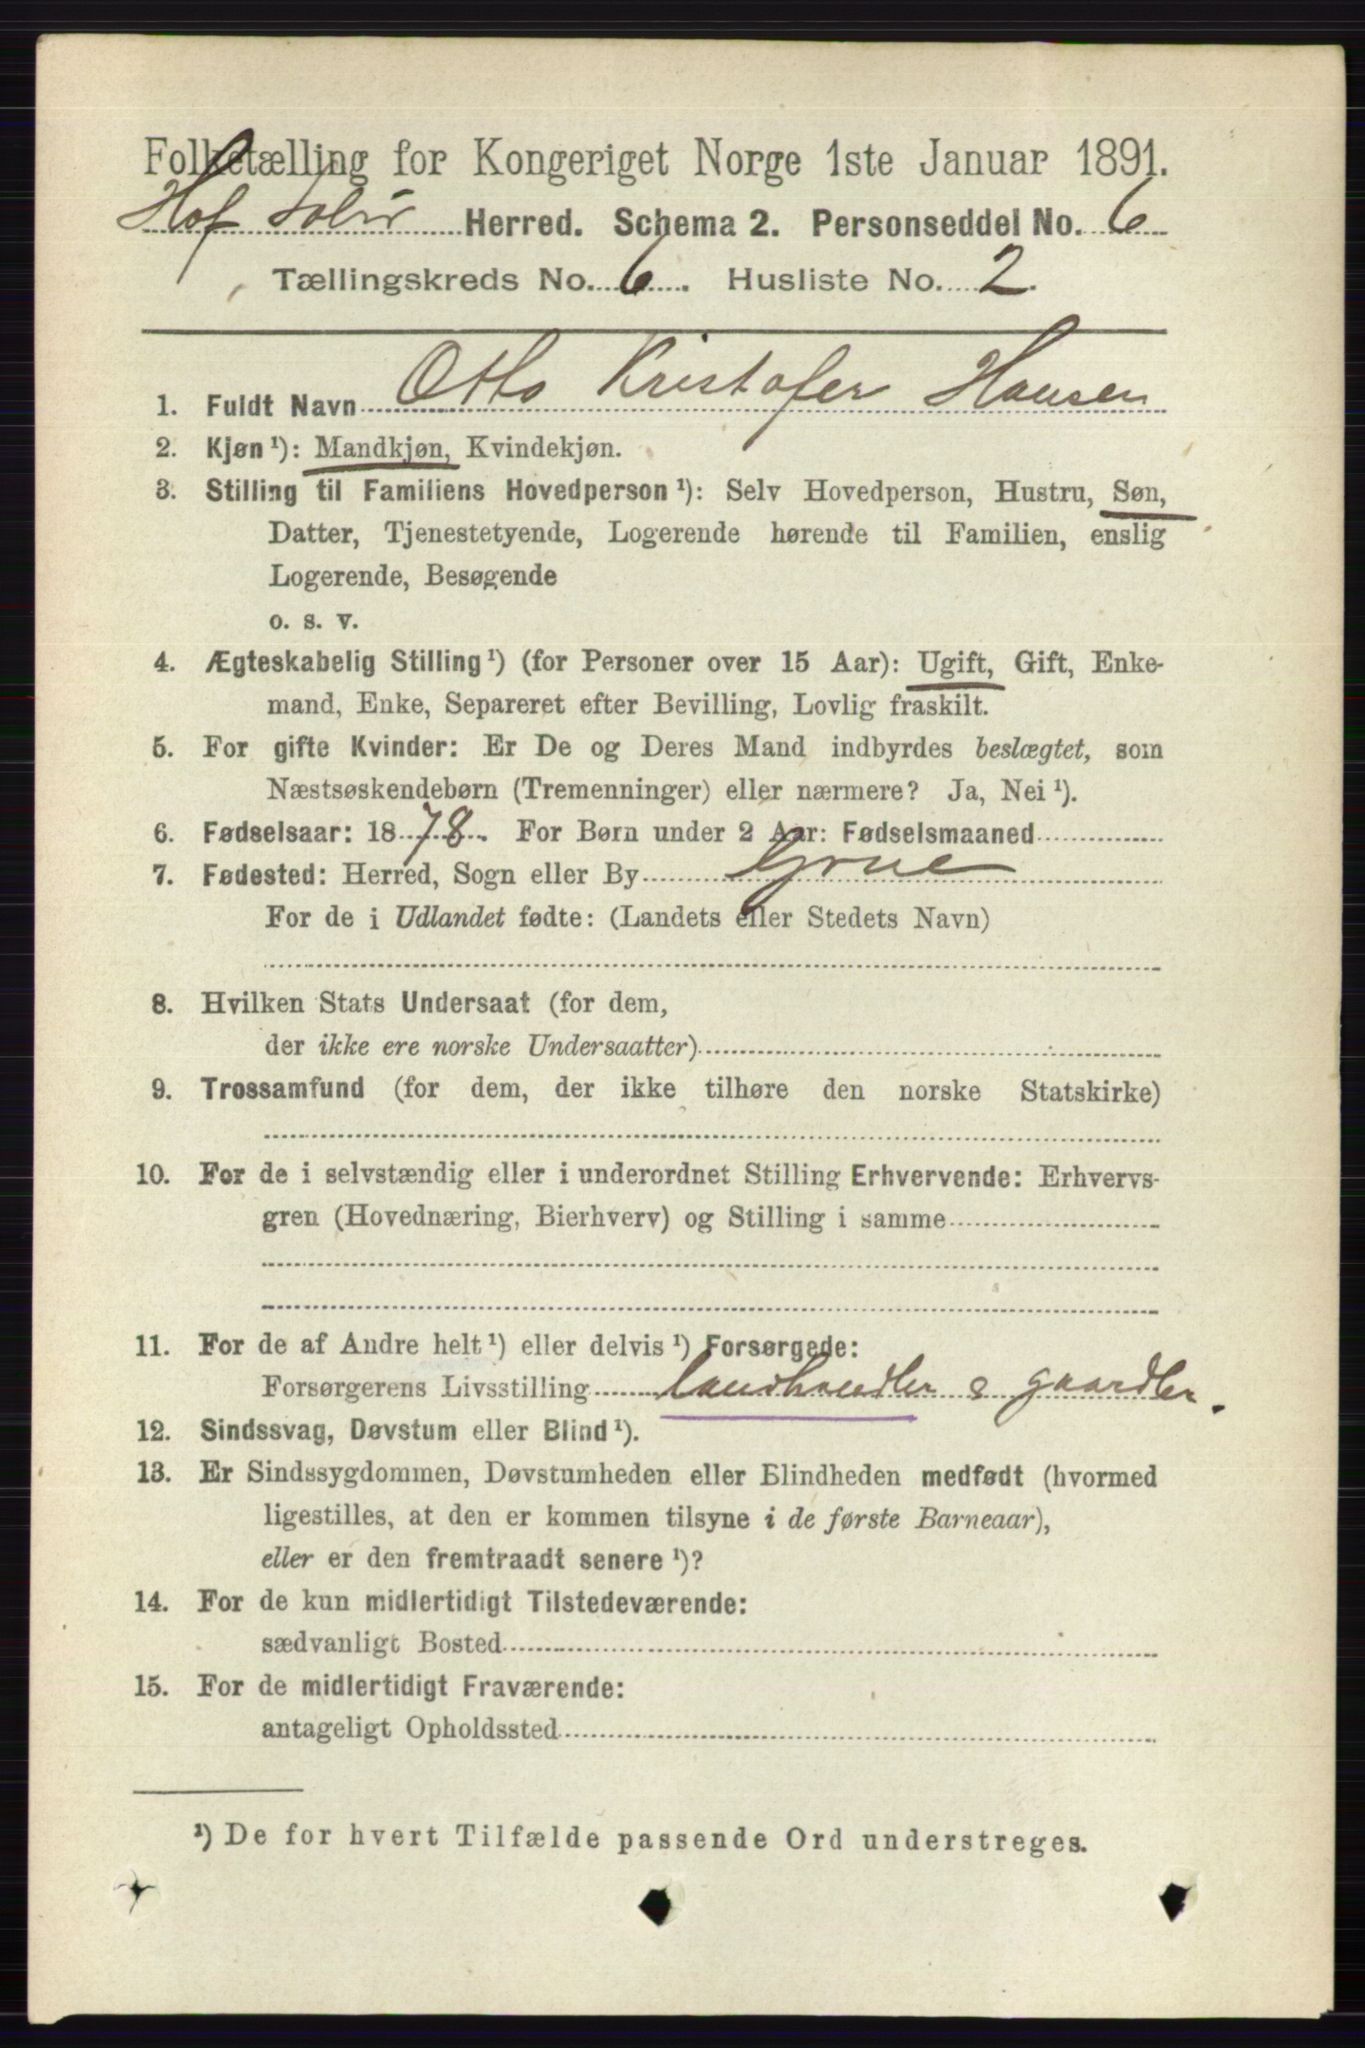 Folketælling for Kongeriget Norge 1ste Januar 1891.
Hof Solør Herred. Schema 2. Personseddel No. 6
Tællingskreds No. 6. Husliste No. 2.
1. Fuldt Navn Otto Kristofer Hansen
2. Kjøn ¹): Mandkjøn, Kvindekjøn.
3. Stilling til Familiens Hovedperson ¹): Selv Hovedperson, Hustru, Søn,
Datter, Tjenestetyende, Logerende hørende til Familien, enslig
Logerende, Besøgende
o. s. v.
4. Ægteskabelig Stilling ¹) (for Personer over 15 Aar): Ugift, Gift, Enke-
mand, Enke, Separeret efter Bevilling, Lovlig fraskilt.
5. For gifte Kvinder: Er De og Deres Mand indbyrdes beslægtet, som
Næstsøskendebørn (Tremenninger) eller nærmere? Ja, Nei ¹).
6. Fødselsaar: 1878. For Børn under 2 Aar: Fødselsmaaned
7. Fødested: Herred, Sogn eller By Grue
For de i Udlandet fødte: (Landets eller Stedets Navn)
8. Hvilken Stats Undersaat (for dem,
der ikke ere norske Undersaatter)
9. Trossamfund (for dem, der ikke tilhøre den norske Statskirke)
10. For de i selvstændig eller i underordnet Stilling Erhvervende: Erhvervs-
gren (Hovednæring, Bierhverv) og Stilling i samme
11. For de af Andre helt ¹) eller delvis ¹) Forsørgede:
Forsørgerens Livsstilling landhandler & gaardbr.
12. Sindssvag, Døvstum eller Blind ¹).
13. Er Sindssygdommen, Døvstumheden eller Blindheden medfødt (hvormed
ligestilles, at den er kommen tilsyne i de første Barneaar),
eller er den fremtraadt senere ¹)?
14. For de kun midlertidigt Tilstedeværende:
sædvanligt Bosted
15. For de midlertidigt Fraværende:
antageligt Opholdssted
¹) De for hvert Tilfælde passende Ord understreges.